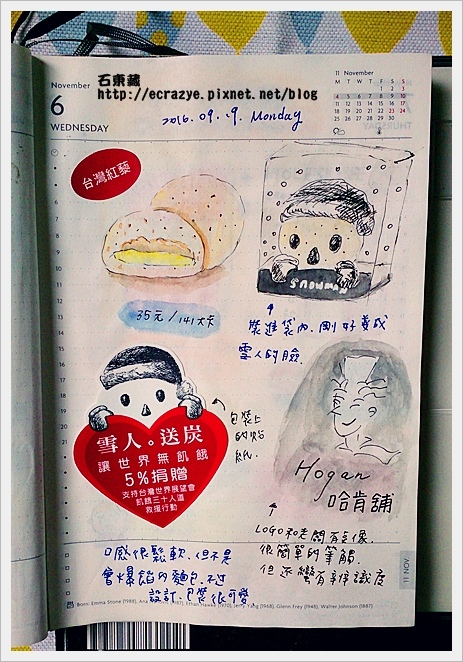 November
6
WEDNESDAY
石東藏
http://ecrazye.pixnet.net/blog
2016.09.19. Monday
11 November
M T W T F S S
1 2 3
4 5 6 7 8 9 10
11 12 13 14 15 16 17
18 19 20 21 22 23 24
25 26 27 28 29 30
台灣紅藜
35元/141大卡
snowman
裝進袋內,剛好養成
雪人的臉.
雪人。送炭
讓世界無飢餓
5%捐贈
支持台灣世界展望會
飢餓三十人道
救援行動
包裝上
的貼
紙.
Hogan
哈肯舖
LOGO和老闆有点像.
很簡單的筆觸.
但还蠻有辛識度
口感很鬆軟.但不是
會爆餡的麵包.不过
設計.包裝很可愛.
11 NOV
Born: Emma Stone (1988), Ethan Hawke (1970), Jerry Yang (1968), Glenn Frey (1948), Walter Johnson (1887)